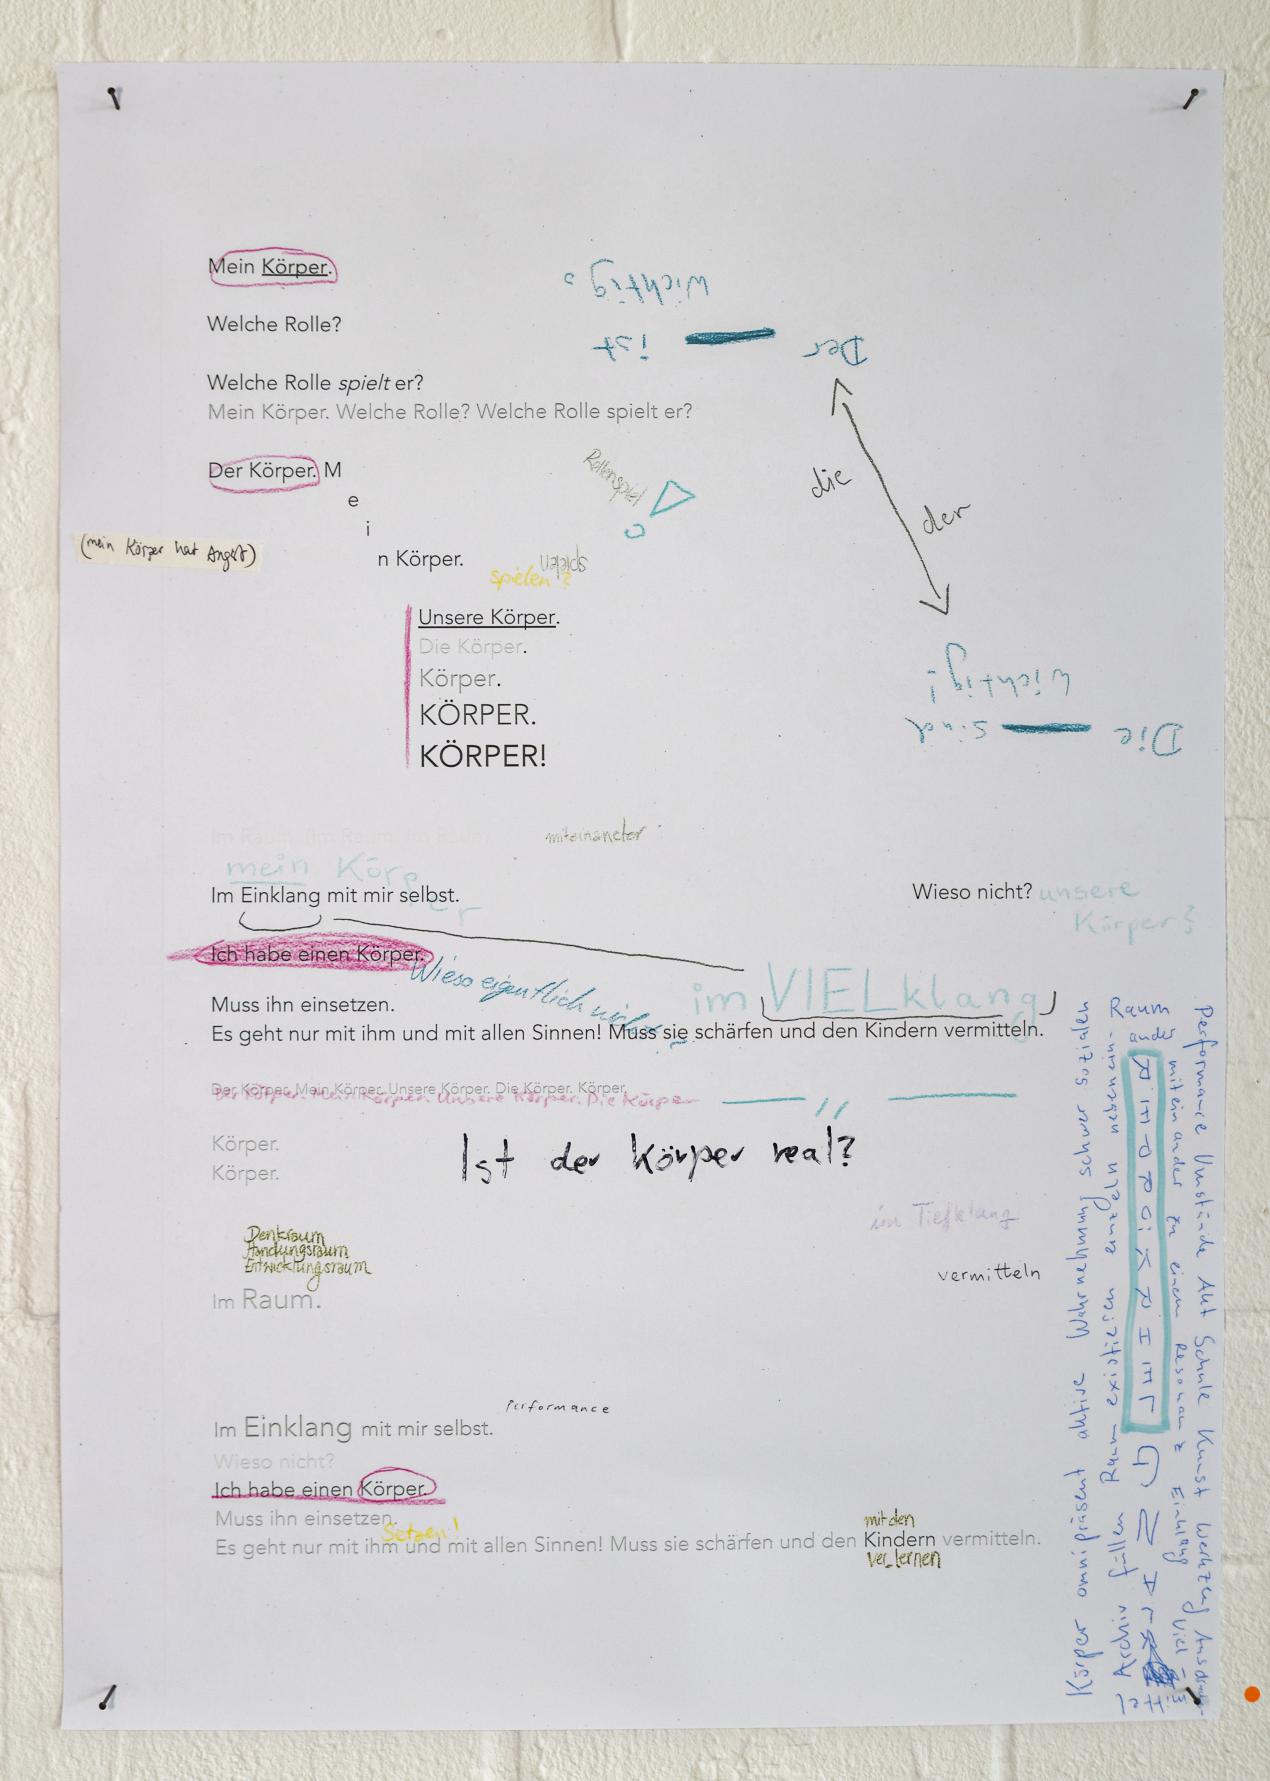 Mein Körper.
wichtig?
Welche Rolle?
Der ist
Welche Rolle spielt er?
Mein Körper. Welche Rolle? Welche Rolle spielt er?
Der Körper. M
e
i
n Körper.
Rollenspiel
die
der
(mein Körper hat Angst)
spielen
spielen?
Unsere Körper.
Die Körper.
Körper.
KÖRPER.
KÖRPER!
wichtig!
Die sind
Im Raum. Im Raum. Im Raum.
miteinander
mein Körper
Im Einklang mit mir selbst.
Wieso nicht? unsere
Körper?
Ich habe einen Körper.
Wieso eigentlich nicht
im VIELklang
Muss ihn einsetzen.
Es geht nur mit ihm und mit allen Sinnen! Muss sie schärfen und den Kindern vermitteln.
Der Körper. Mein Körper. Unsere Körper. Die Körper. Körper.
Der Körper. Mein Körper. Unsere Körper. Die Körper
Körper.
Ist der Körper real?
Körper.
im Tiefklang
Denkraum
Handlungsraum
Entwicklungsraum
vermitteln
Im Raum.
Performance
Im Einklang mit mir selbst.
Wieso nicht?
Ich habe einen Körper.
Muss ihn einsetzen.
Setzen!
mit den
Es geht nur mit ihm und mit allen Sinnen! Muss sie schärfen und den Kindern vermitteln.
ver_lernen
Körper omnipräsent aktive Wahrnehmung schwer sozialen
Archiv füllen Raum existieren einzeln nebenein-
Raum
ander
miteinander zu einem Resonanz Einklang Viel
Performance Umstände Akt Schule Kunst Werkzeug